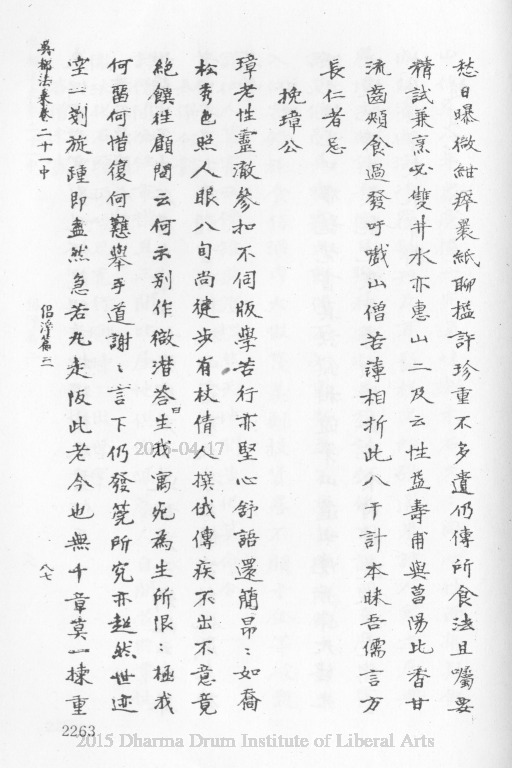 愁日曝微紺瘁裹紙聊搵許珍重不多遺仍傳所食法且囑要
精試兼烹必雙井水亦惠山二及云性益壽甫與菖陽比香甘
流齒頰食過發吁戲山僧若諫相折此八千計本昧吾儒言方
長仁者忌
挽璋公
璋老性靈澈參扣不伺販學若行亦堅心舒語還簡昂〻如喬
松秀色照人眼八旬尚徒步有杖倩人撰俄傳疾不出不意竟
絕饌徃顧問云何示别作微潜荅曰生我寓死為生所恨〻極我
何嗇何惜復何戁舉手道謝〻言下仍發莞所究亦超然世迹
空一剗旋踵即盡然急若丸走阪此老今也無千章莫一揀重
吳都法乘卷二十一中
倡淨篇二
八七
2263
2015-04-17
2015 Dharma Drum Institute of Liberal Arts